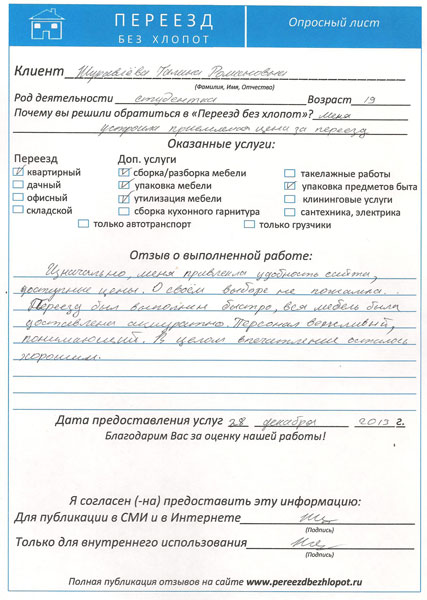 ПЕРЕЕЗД
БЕЗ ХЛОПОТ
Опросный лист
Клиент Журавлёва Галина Романовна
(Фамилия, Имя, Отчество)
Род деятельности студентка Возраст 19
Почему вы решили обратиться в «Переезд без хлопот»? меня
устроила приемлемая цена за переезд
Оказанные услуги:
Переезд
квартирный
дачный
офисный
складской
Доп. услуги
сборка/разборка мебели
упаковка мебели
утилизация мебели
сборка кухонного гарнитура
такелажные работы
упаковка предметов быта
клининговые услуги
сантехника, электрика
только автотранспорт
только грузчики
Отзыв о выполненной работе:
Изначально, меня привлекла удобность сайта,
доступные цены. О своём выборе не пожалела.
Переезд был выполнен быстро, вся мебель была
доставлена аккуратно. Персонал вежливый,
понимающий. В целом впечатление осталось
хорошим.
Дата предоставления услуг 28 декабря 2013 г.
Благодарим Вас за оценку нашей работы!
Я согласен (-на) предоставить эту информацию:
Для публикации в СМИ и в Интернете
(Подпись)
Только для внутреннего использования
(Подпись)
Полная публикация отзывов на сайте www.pereezdbezhlopot.ru